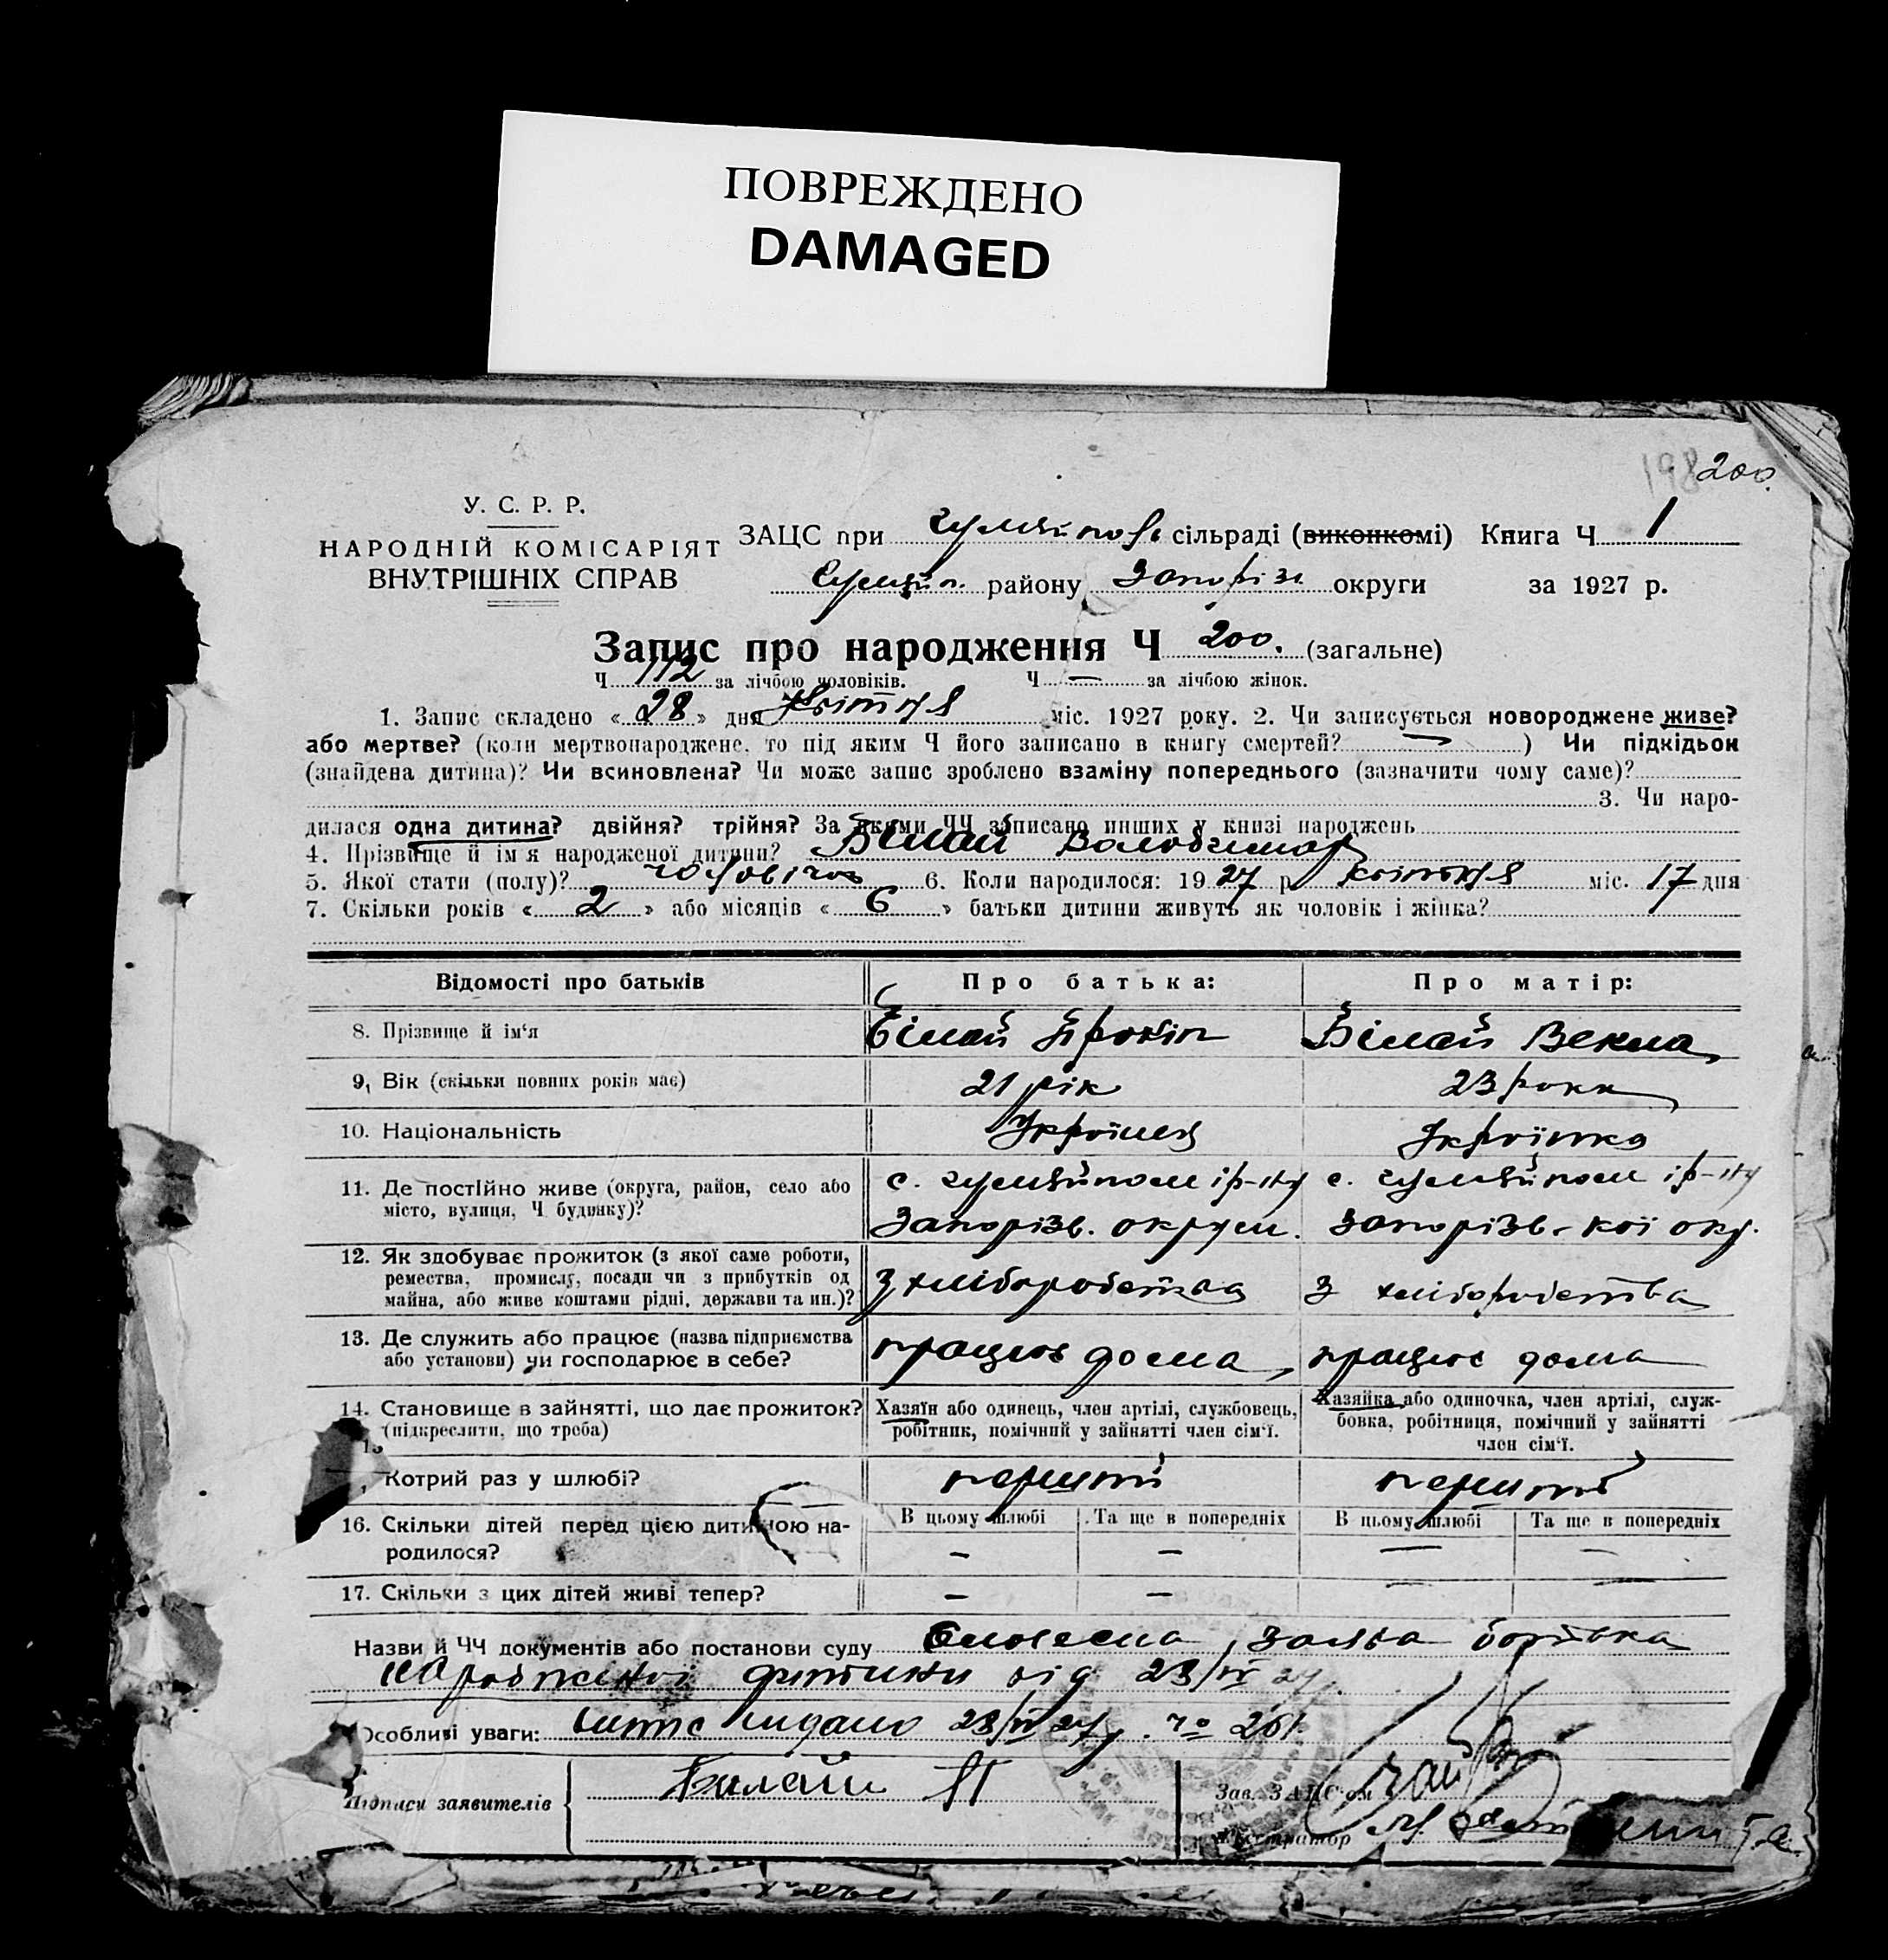 ПОВРЕЖДЕНО
DAMAGED
198 200.
У. С. Р. Р.
НАРОДНІЙ КОМІСАРІЯТ
ВНУТРІШНІХ СПРАВ
ЗАЦС при сільраді (виконкомі) Книга Ч 1
району Запоріз округи за 1927 р.
Запис про народження Ч 200. (загальне)
Ч 112 за лічбою чоловіків. Ч — за лічбою жінок.
1. Запис складено « 28 » дня Квітня міс. 1927 року. 2. Чи записується новороджене живе?
або мертве? (коли мертвонароджене, то під яким Ч його записано в книгу смертей? — ) Чи підкідьок
(знайдена дитина)? Чи всиновлена? Чи може запис зроблено взаміну попереднього (зазначити чому саме)?
3. Чи наро-
дилася одна дитина? двійня? трійня? За якими ЧЧ записано инших у книзі народжень
4. Прізвище й ім'я народженої дитини? Білай Володимир
5. Якої стати (полу)? чоловічої 6. Коли народилося: 1927 р. квітня міс. 17 дня
7. Скільки років « 2 » або місяців « 6 » батьки дитини живуть як чоловік і жінка?
Відомості про батьків Про батька: Про матір:
8. Прізвище й ім'я Білай Прокіп Білай Векла
9. Вік (скільки повних років має) 21 рік 23 роки
10. Національність Українец Українка
11. Де постійно живе (округа, район, село або місто, вулиця, Ч будинку)?
с. р-ну с. р-ну
Запорізь. округи. Запорізь-кої окр.
12. Як здобуває прожиток (з якої саме роботи,
ремества, промислу, посади чи з прибутків од
майна, або живе коштами рідні, держави та ин.)? З хліборобства З хліборобства
13. Де служить або працює (назва підприємства
або установи) чи господарює в себе? працює дома, працює дома
14. Становище в зайнятті, що дає прожиток?
(підкреслити, що треба)
Хазяїн або одинець, член артілі, службовець,
робітник, помічний у зайнятті член сім'ї.
Хазяйка або одиночка, член артілі, служ-
бовка, робітниця, помічний у зайнятті
член сім'ї.
15. Котрий раз у шлюбі? перший перший
16. Скільки дітей перед цією дитиною на-
родилося?
В цьому шлюбі Та ще в попередніх В цьому шлюбі Та ще в попередніх
— — — —
17. Скільки з цих дітей живі тепер? — — — —
Назви й ЧЧ документів або постанови суду Словесна заява батька
дитини від 23/IV 27
Особливі уваги: видано 28/IV 27 261
Підписи заявителів Билай П
Зав. ЗАЦС'ом
Реєстратор